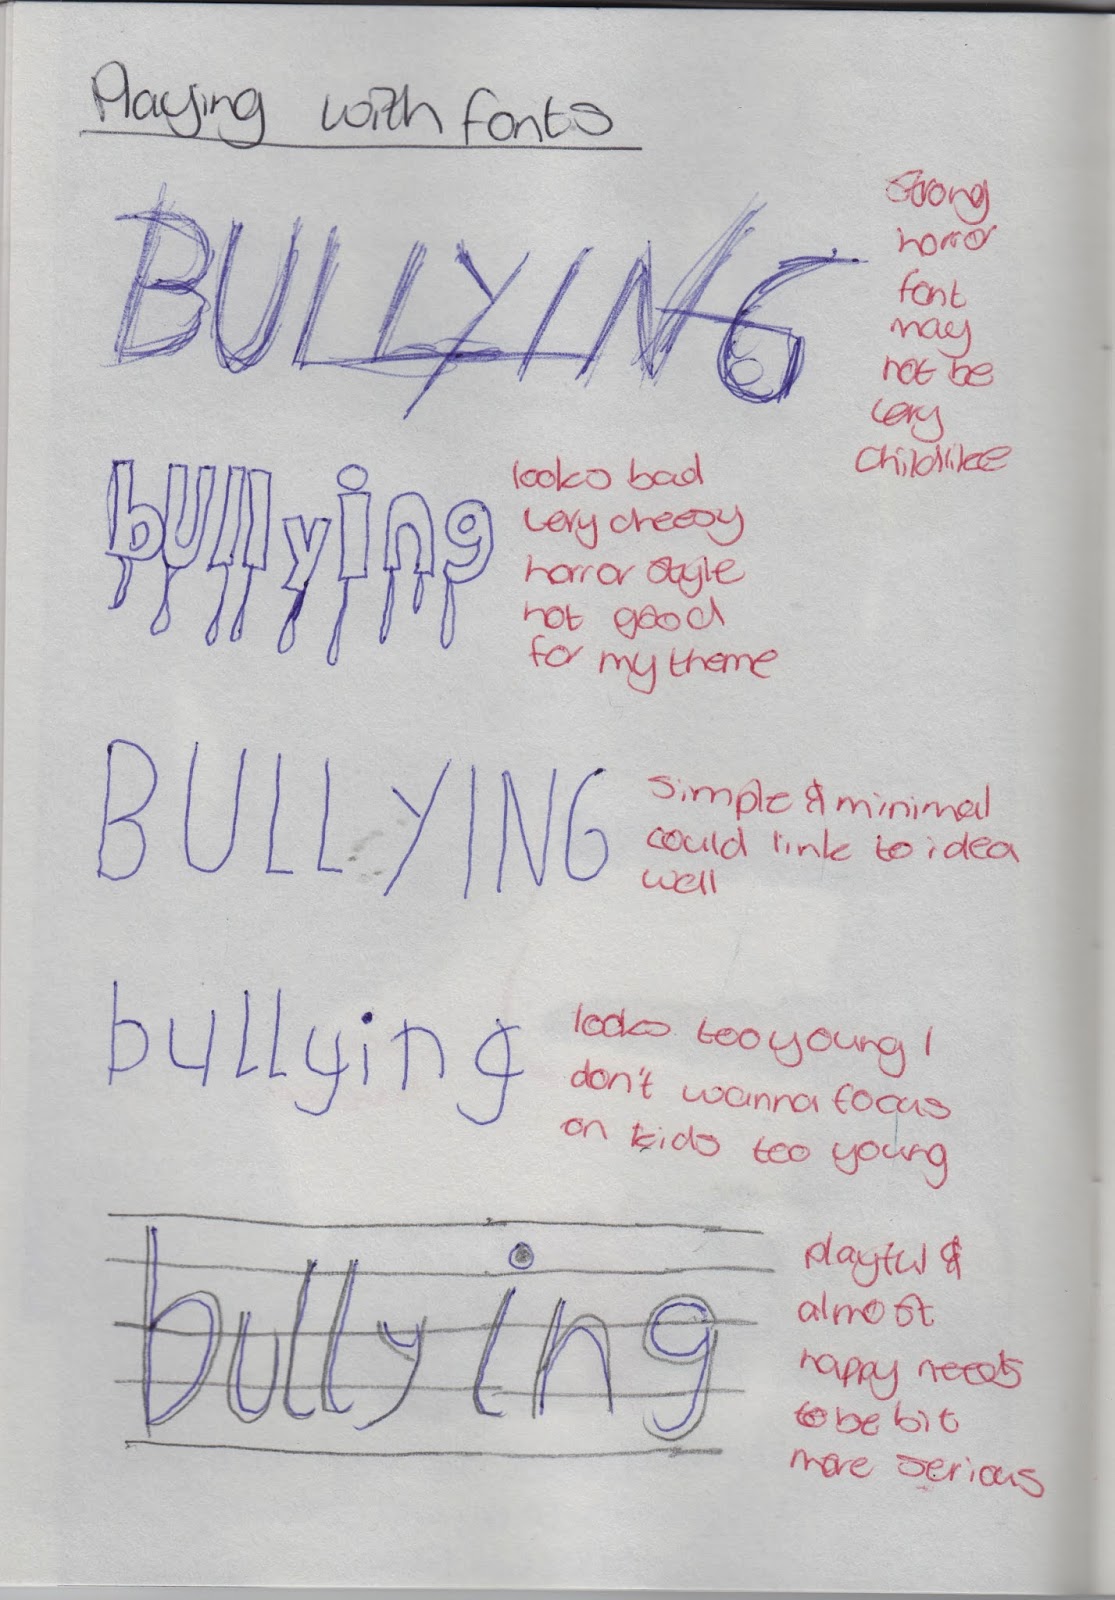 Playing with fonts
BULLYING
Strong
horror
font
may
not be
very
childlike
bullying
looks bad
very cheesy
horror style
not good
for my theme
BULLYING
simple & minimal
could link to idea
well
bullying
looks too young I
don't wanna focus
on kids too young
bullying
playful &
almost
happy needs
to be bit
more serious